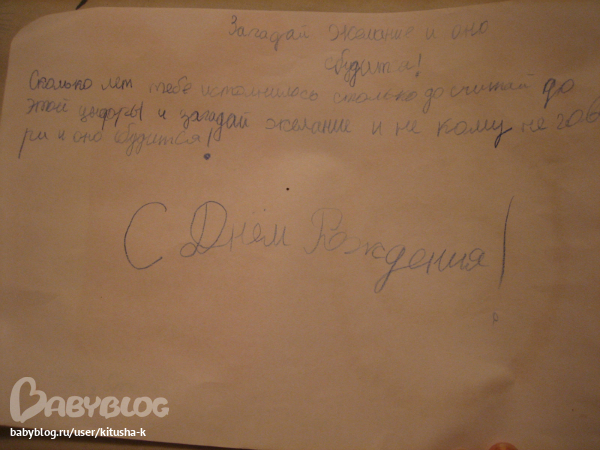 Загадай желание и оно
сбудится!
Сколько лет тебе исполнилось столько до считай до
этой цыфры и загадай желание и не кому не гов
ри и оно сбудится!
С Днём Рождения!
BABYBLOG
babyblog.ru/user/kitusha-k